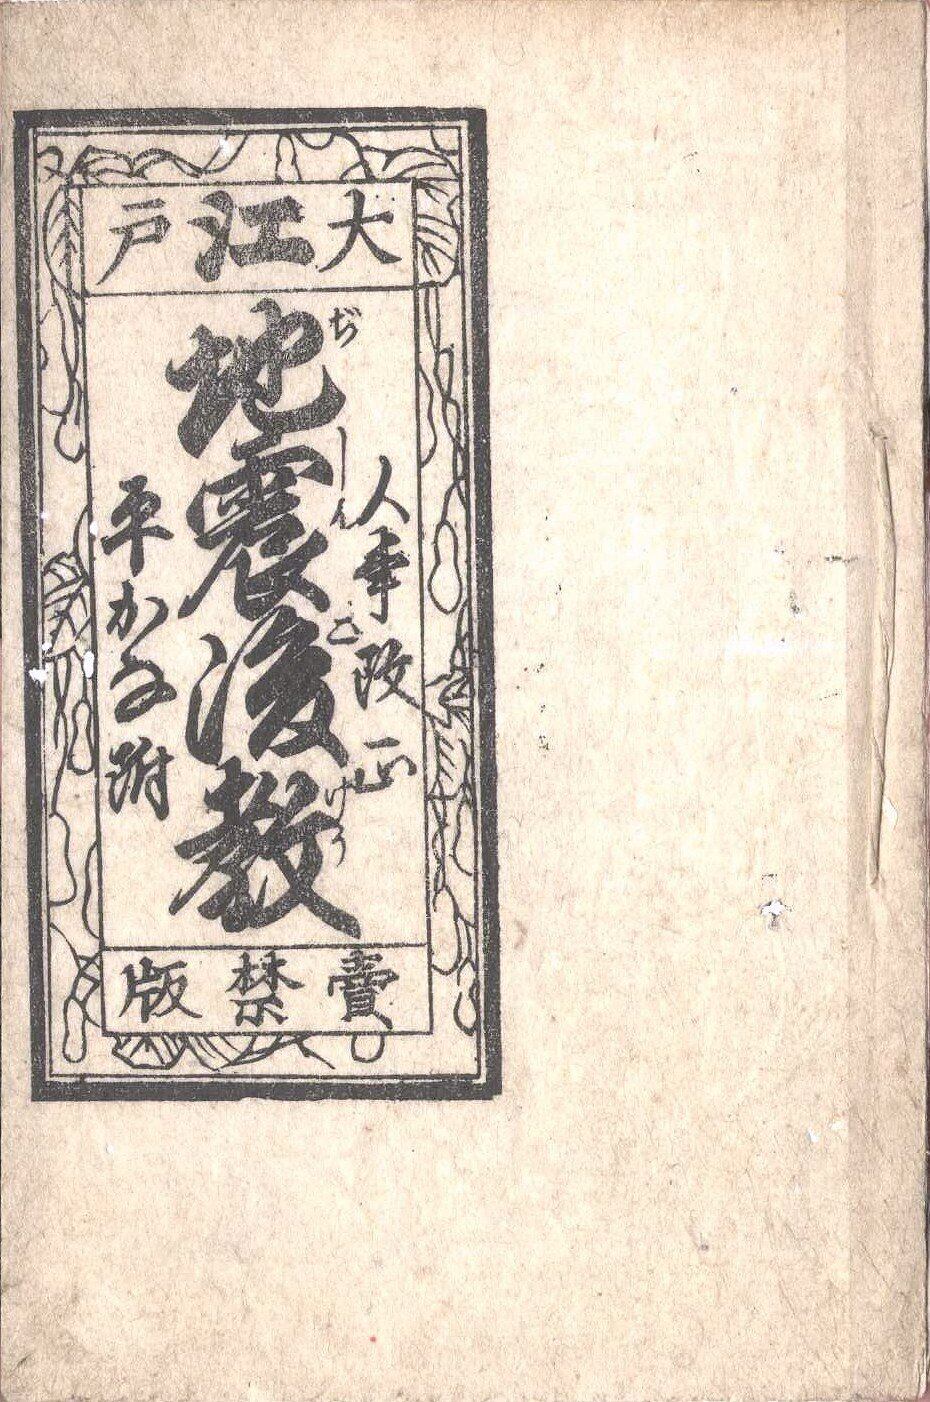 大江戸
人事改正
地震後教
ぢしんごけう
平かな附
賣禁版